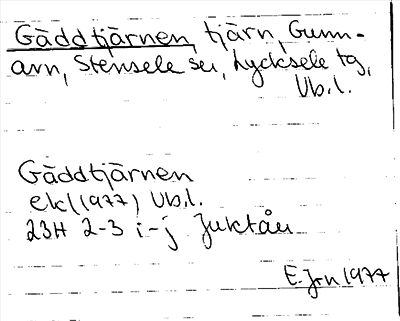 Gäddtjärnen, tjärn, Gunn-
arn, Stensele sn, Lycksele tg,
Vb.l.
Gäddtjärnen
ekl (1977) Vb.l.
23H 2-3 i-j Juktån
E. Jrn 1977